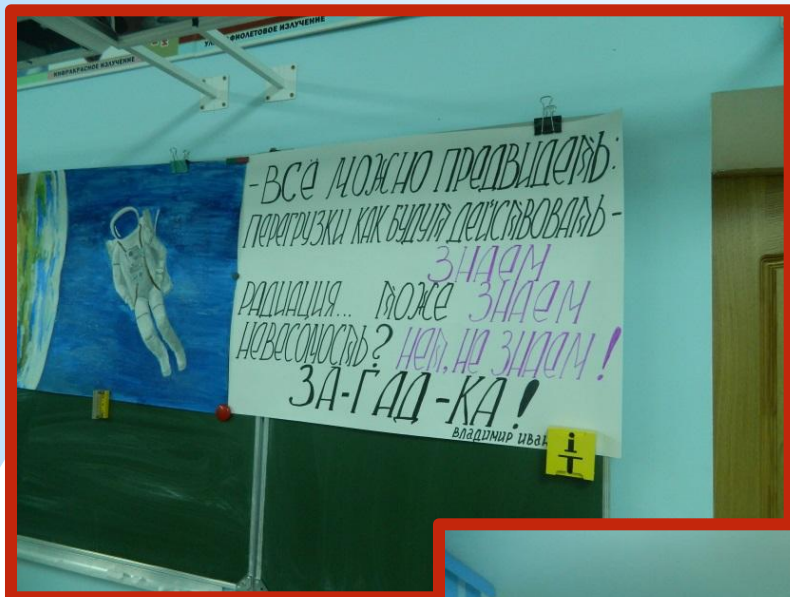 ИНФРАКРАСНОЕ ИЗЛУЧЕНИЕ
УЛЬТРАФИОЛЕТОВОЕ ИЗЛУЧЕНИЕ
-ВСЁ МОЖНО ПРЕДВИДЕТЬ:
ПЕРЕГРУЗКИ КАК БУДУТ ДЕЙСТВОВАТЬ-
ЗНАЕМ
РАДИАЦИЯ... ТОЖЕ ЗНАЕМ
НЕВЕСОМОСТЬ? НЕТ, НЕ ЗНАЕМ!
ЗА-ГАД-КА!
ВЛАДИМИР
i
T